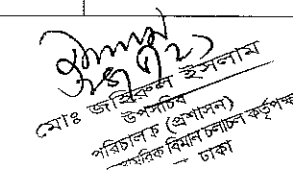 মোঃ জহিরুল ইসলাম
উপসচিব
পরিচালক (প্রশাসন)
বিমান চলাচল কর্তৃপক্ষ
ঢাকা